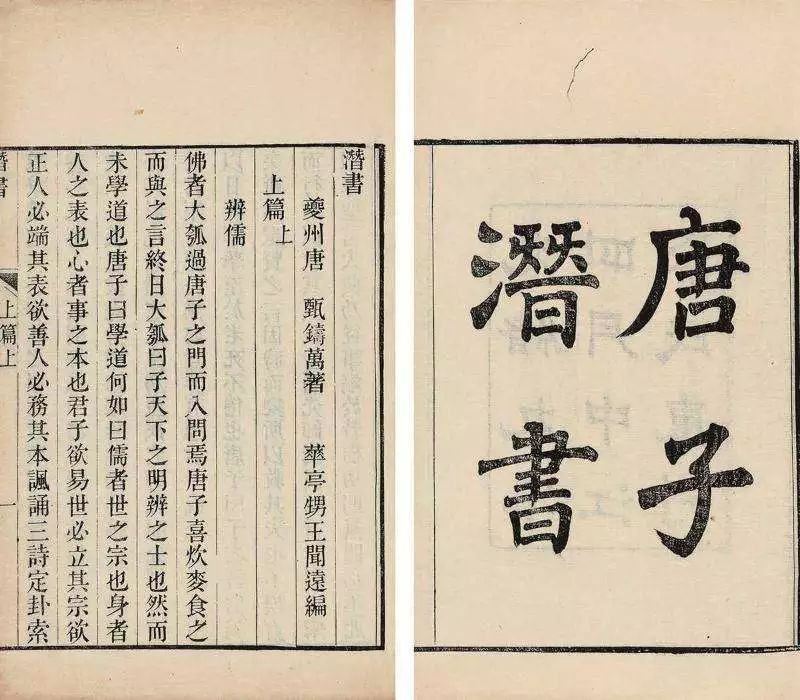 唐子
潛書
潛書
夔州唐 甄鑄萬著 華亭甥王聞遠編
上篇上
辨儒
佛者大瓠過唐子之門而入問焉唐子喜炊麥食之
而與之言終日大瓠曰子天下之明辨之士也然而
未學道也唐子曰學道何如曰儒者世之宗也身者
人之表也心者事之本也君子欲易世必立其宗欲
正人必端其表欲善人必務其本諷誦三詩定卦索
潛書
上篇上
一